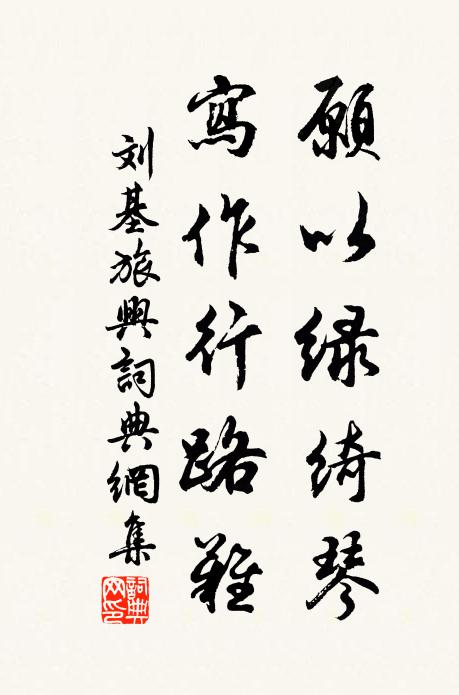 願以绿綺琴
寫作行路難
刘基旅興詞典網集
詞典
网印